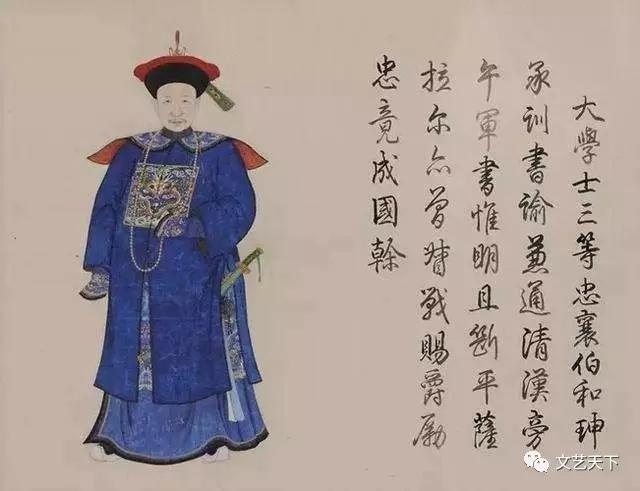 大學士三等忠襄伯和珅
承訓書諭兼通清漢旁
午軍書惟明且斷平薩
拉尔亦曾督戰賜爵勵
忠竟成國幹
文艺天下